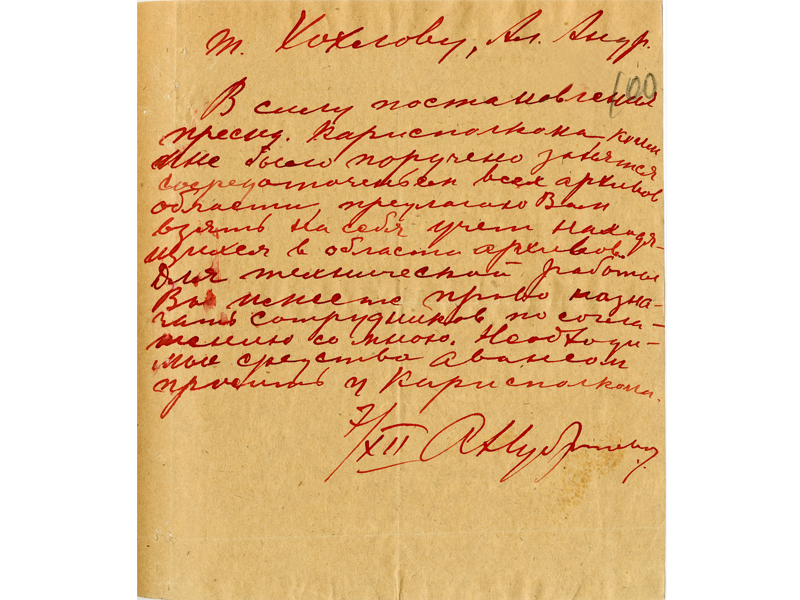 т. Хохлову, Ал. Андр.
100
В силу постановления
презид. Карисполкома, коим
мне было поручено заняться
сосредоточеньем всех архивов
области, предлагаю Вам
взять на себя учет находя-
щихся в области архивов.
Для технической работы
Вы имеете право назна-
чать сотрудников по согла-
шению со мною. Необходи-
мые средства авансом
просить у Карисполкома.
7/XII